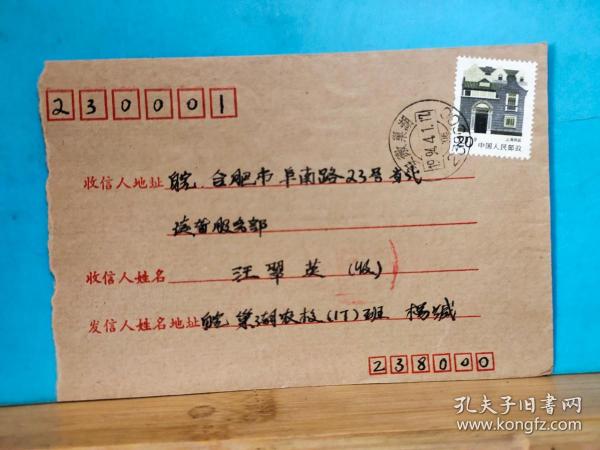 230001
上海民居
20分
中国人民邮政
安徽巢湖
1994.4.1.17
收信人地址 皖 合肥市阜南路23号省民
读者服务部
收信人姓名 汪翠英(收)
发信人姓名地址 皖 巢湖农校(17)班 杨斌
238000
孔夫子旧书网
www.kongfz.com